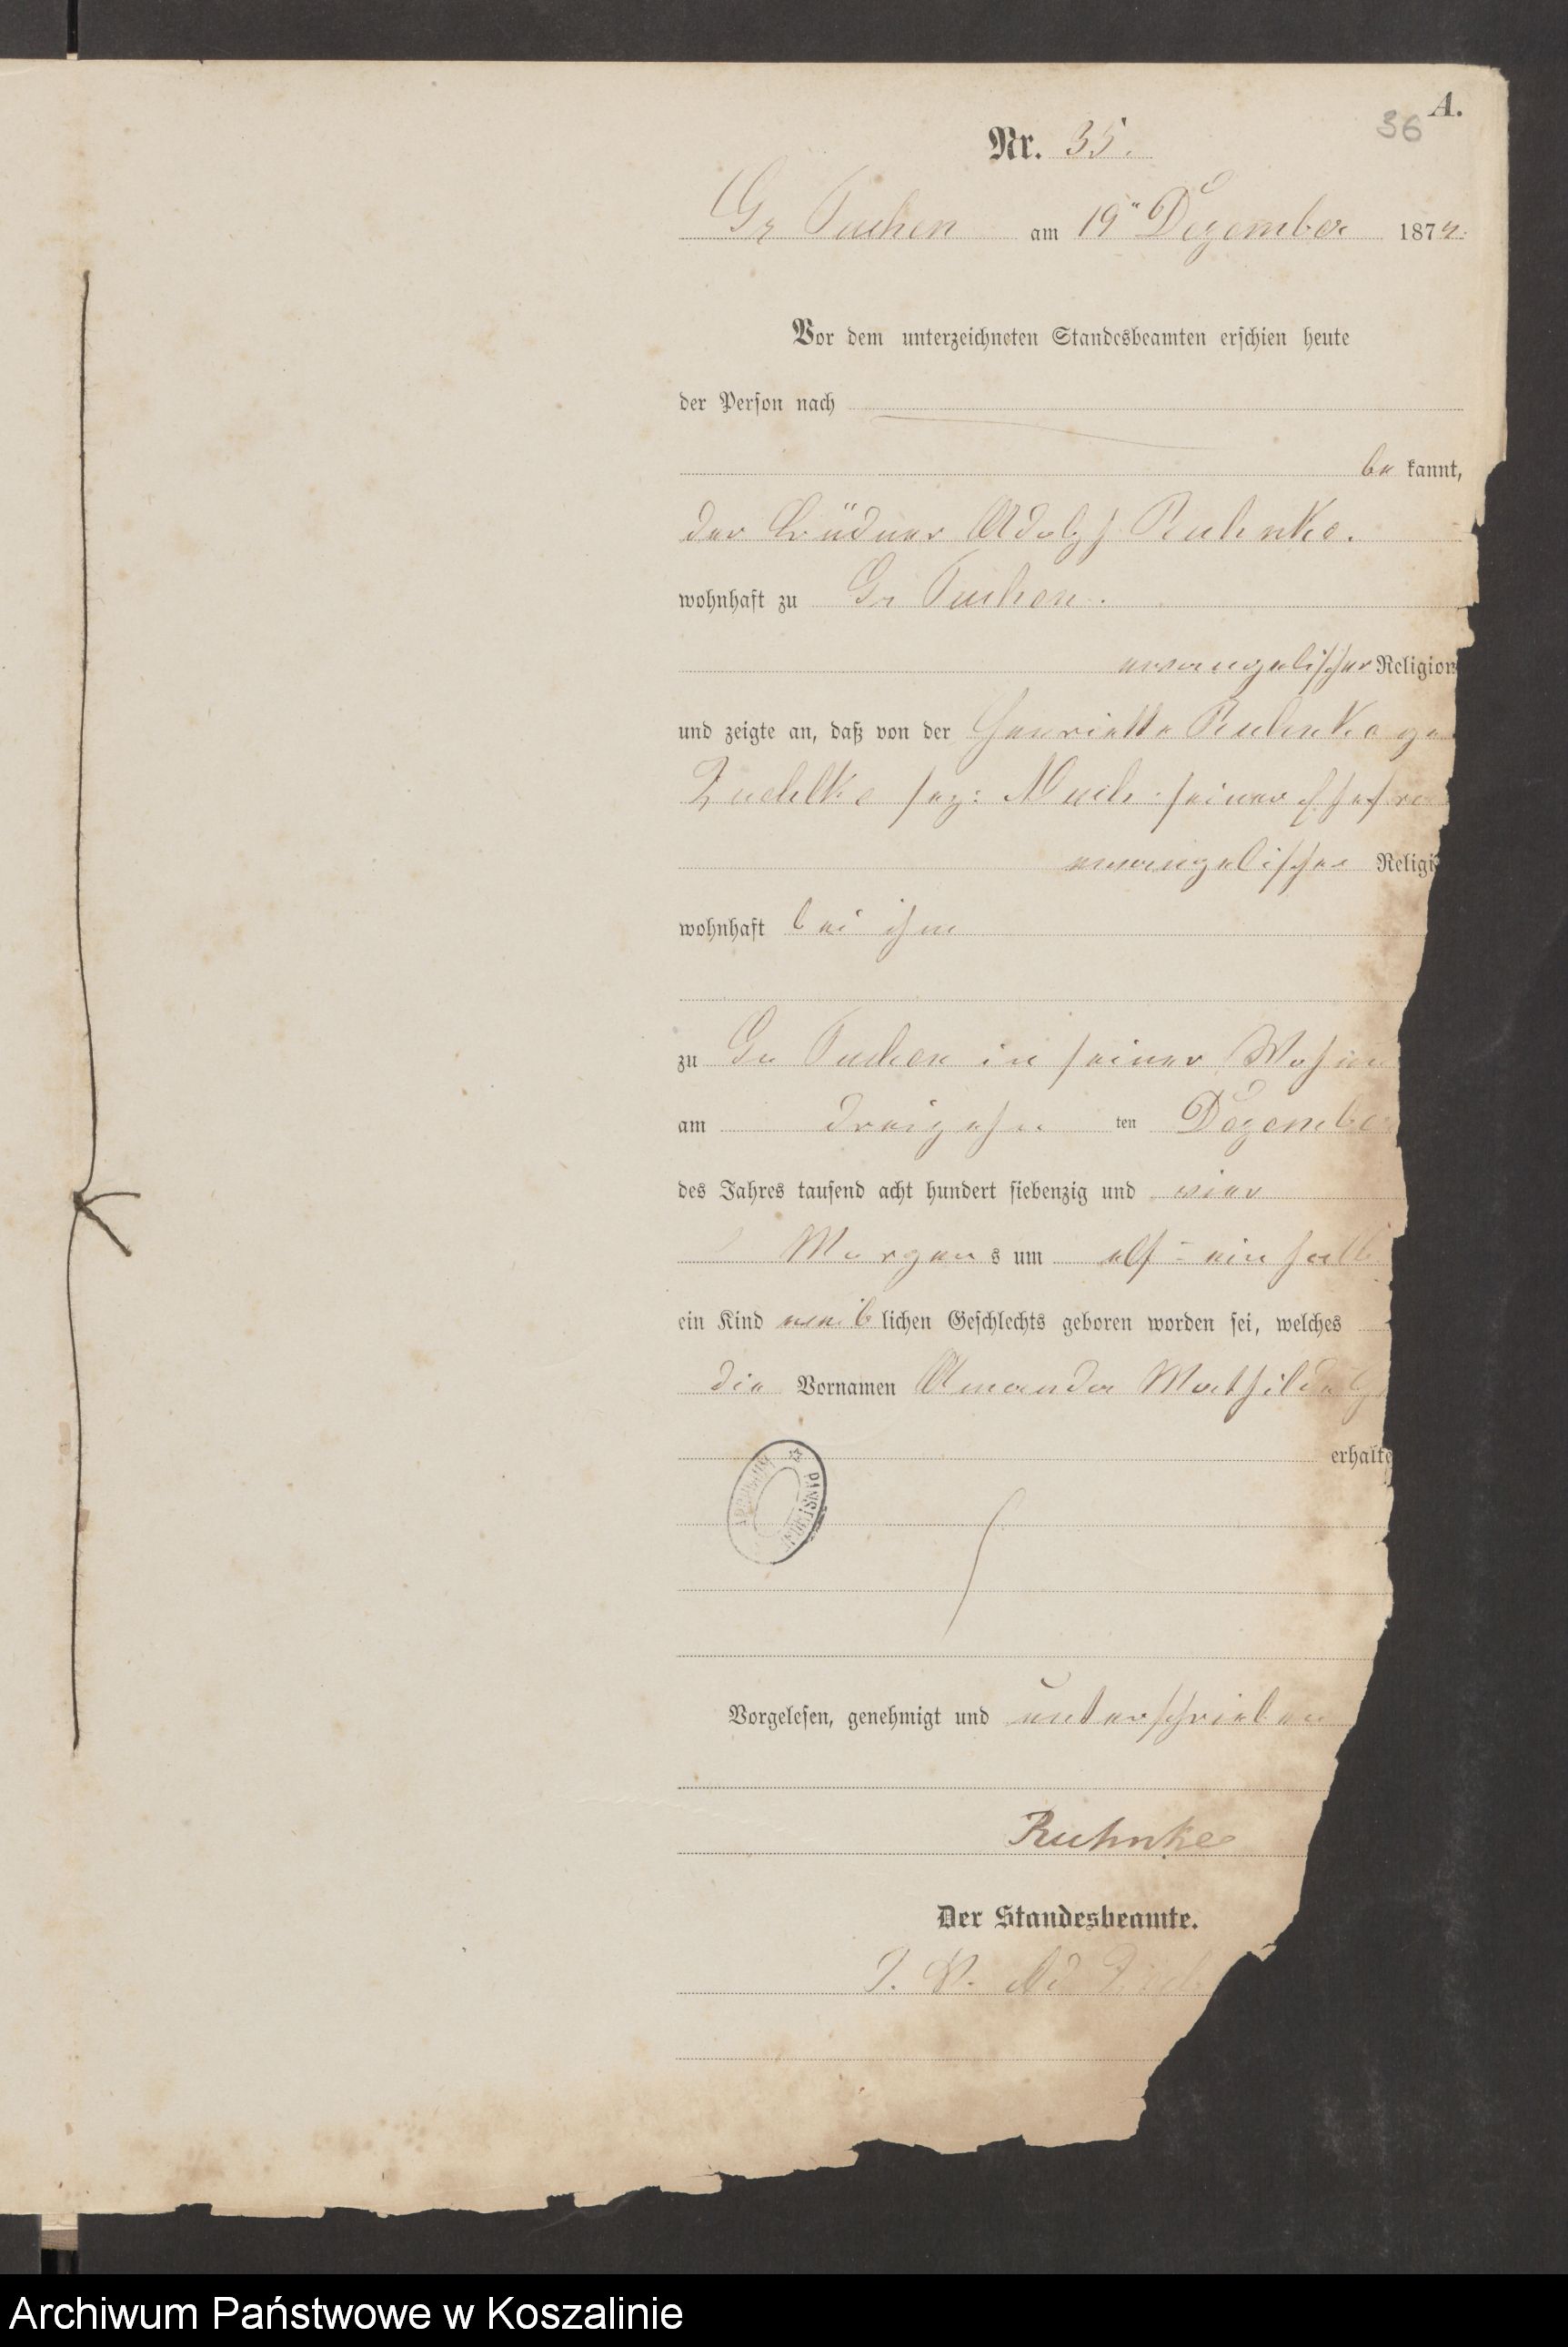 A.
36
Nr. 35.
Gr Tuchen am 19" Dezember 1874.
Vor dem unterzeichneten Standesbeamten erschien heute
der Person nach
be kannt,
der Büdner Adolph Ruhnke.
wohnhaft zu Gr Tuchen.
evangelischer Religion
und zeigte an, daß von der Henriette Ruhnke ge
seiner Ehefrau
evangelischer Religi
wohnhaft bei ihm
zu Gr Tuchen in seiner Wohnu
am dreizehn ten Dezember
des Jahres tausend acht hundert siebenzig und vier
Morgens um elf ein halb
ein Kind weiblichen Geschlechts geboren worden sei, welches
die Vornamen Amanda Mathilde
erhalte
ARCHIWUM PAŃSTWOWE
Vorgelesen, genehmigt und unterschrieben
Ruhnke
Der Standesbeamte.
J. V.
Archiwum Państwowe w Koszalinie